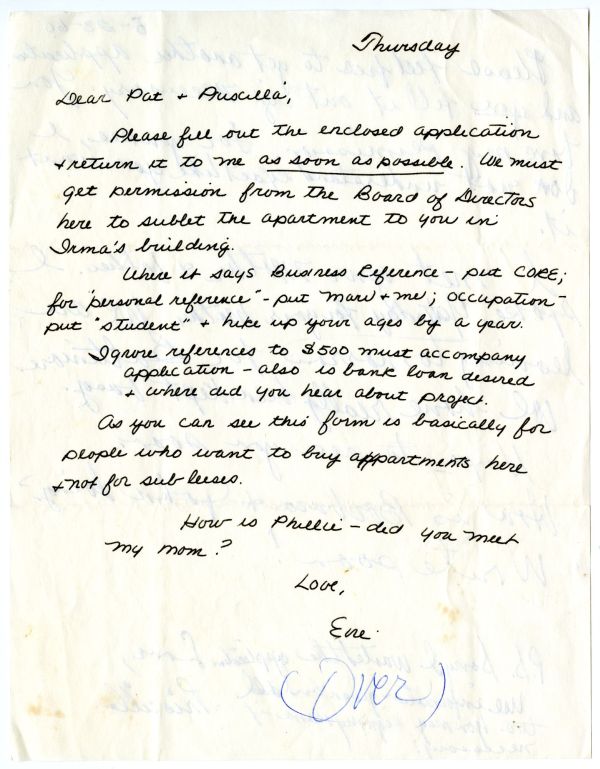 Thursday
Dear Pat + Priscilla,
Please fill out the enclosed application
+ return it to me as soon as possible. We must
get permission from the Board of Directors
here to sublet the apartment to you in
Irma's building.
Where it says Business Reference - put CORE;
for "personal reference" - put Marv + me; occupation -
put "student" + hike up your ages by a year.
Ignore references to $500 must accompany
application - also is bank loan desired
+ where did you hear about project.
As you can see this form is basically for
people who want to buy appartments here
+ not for subleasees.
How is Phillie - did you meet
my mom?
Love,
Evie
(Over)